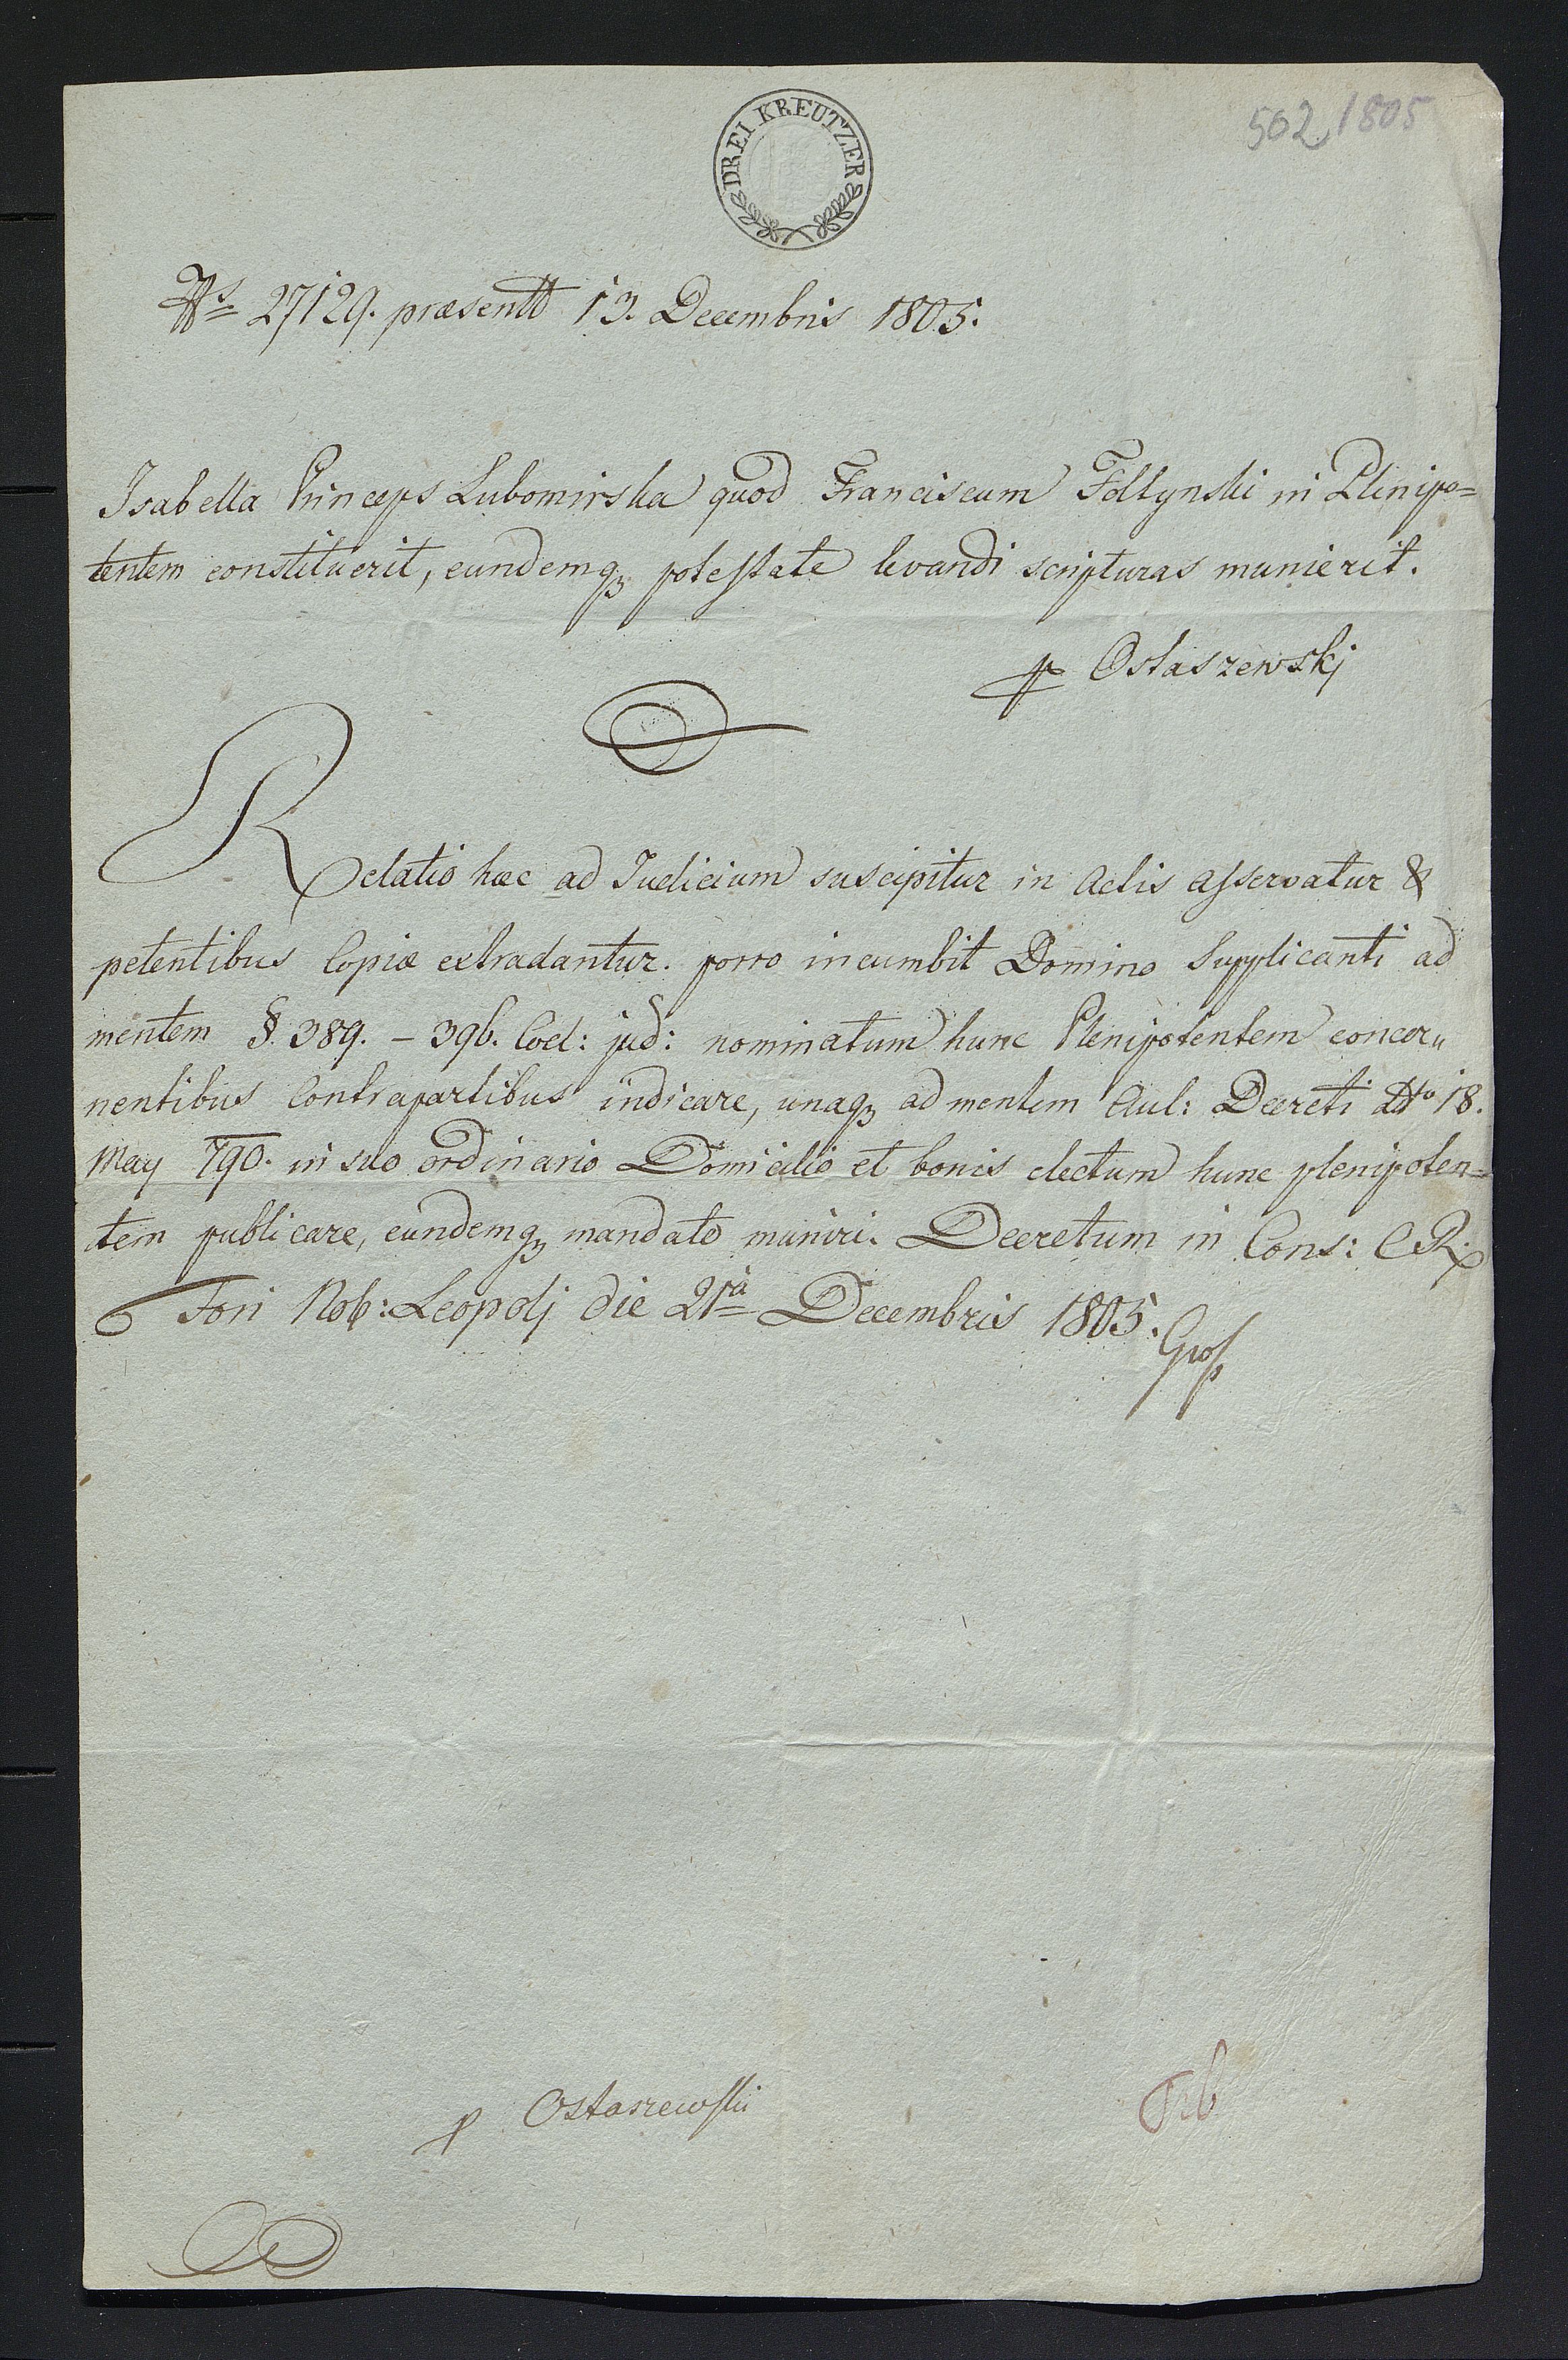 502 1805
DREI KREUTZER
Ns 27129. præsentt 13. Decembris 1805.
Isabella Princeps Lubomirska quod Franciscum Foltynski in Plenipo=
tentem constituerit, eundemq3 potestate levandi scripturas munierit.
p Ostaszewskj
Relatio hæc ad Judicium suscipitur in Actis asservatur &
petentibus Copiæ extradantur. porro incumbit Domino Supplicanti ad
mentem §. 389. – 396. Cod: jud: nominatum hunc Plenipotentem concer„
nentibus Contrapartibus indicare, unaq3 ad mentem Aul: Decreti ddto 18.
May 790. in suo ordinario Domicilio et bonis electum hunc plenipoten=
tem publicare, eundemq3 mandato muniri. Decretum in Cons: C R
Fori Nob: Leopolj die 21a Decembris 1805.
Gros
p Ostaszewski